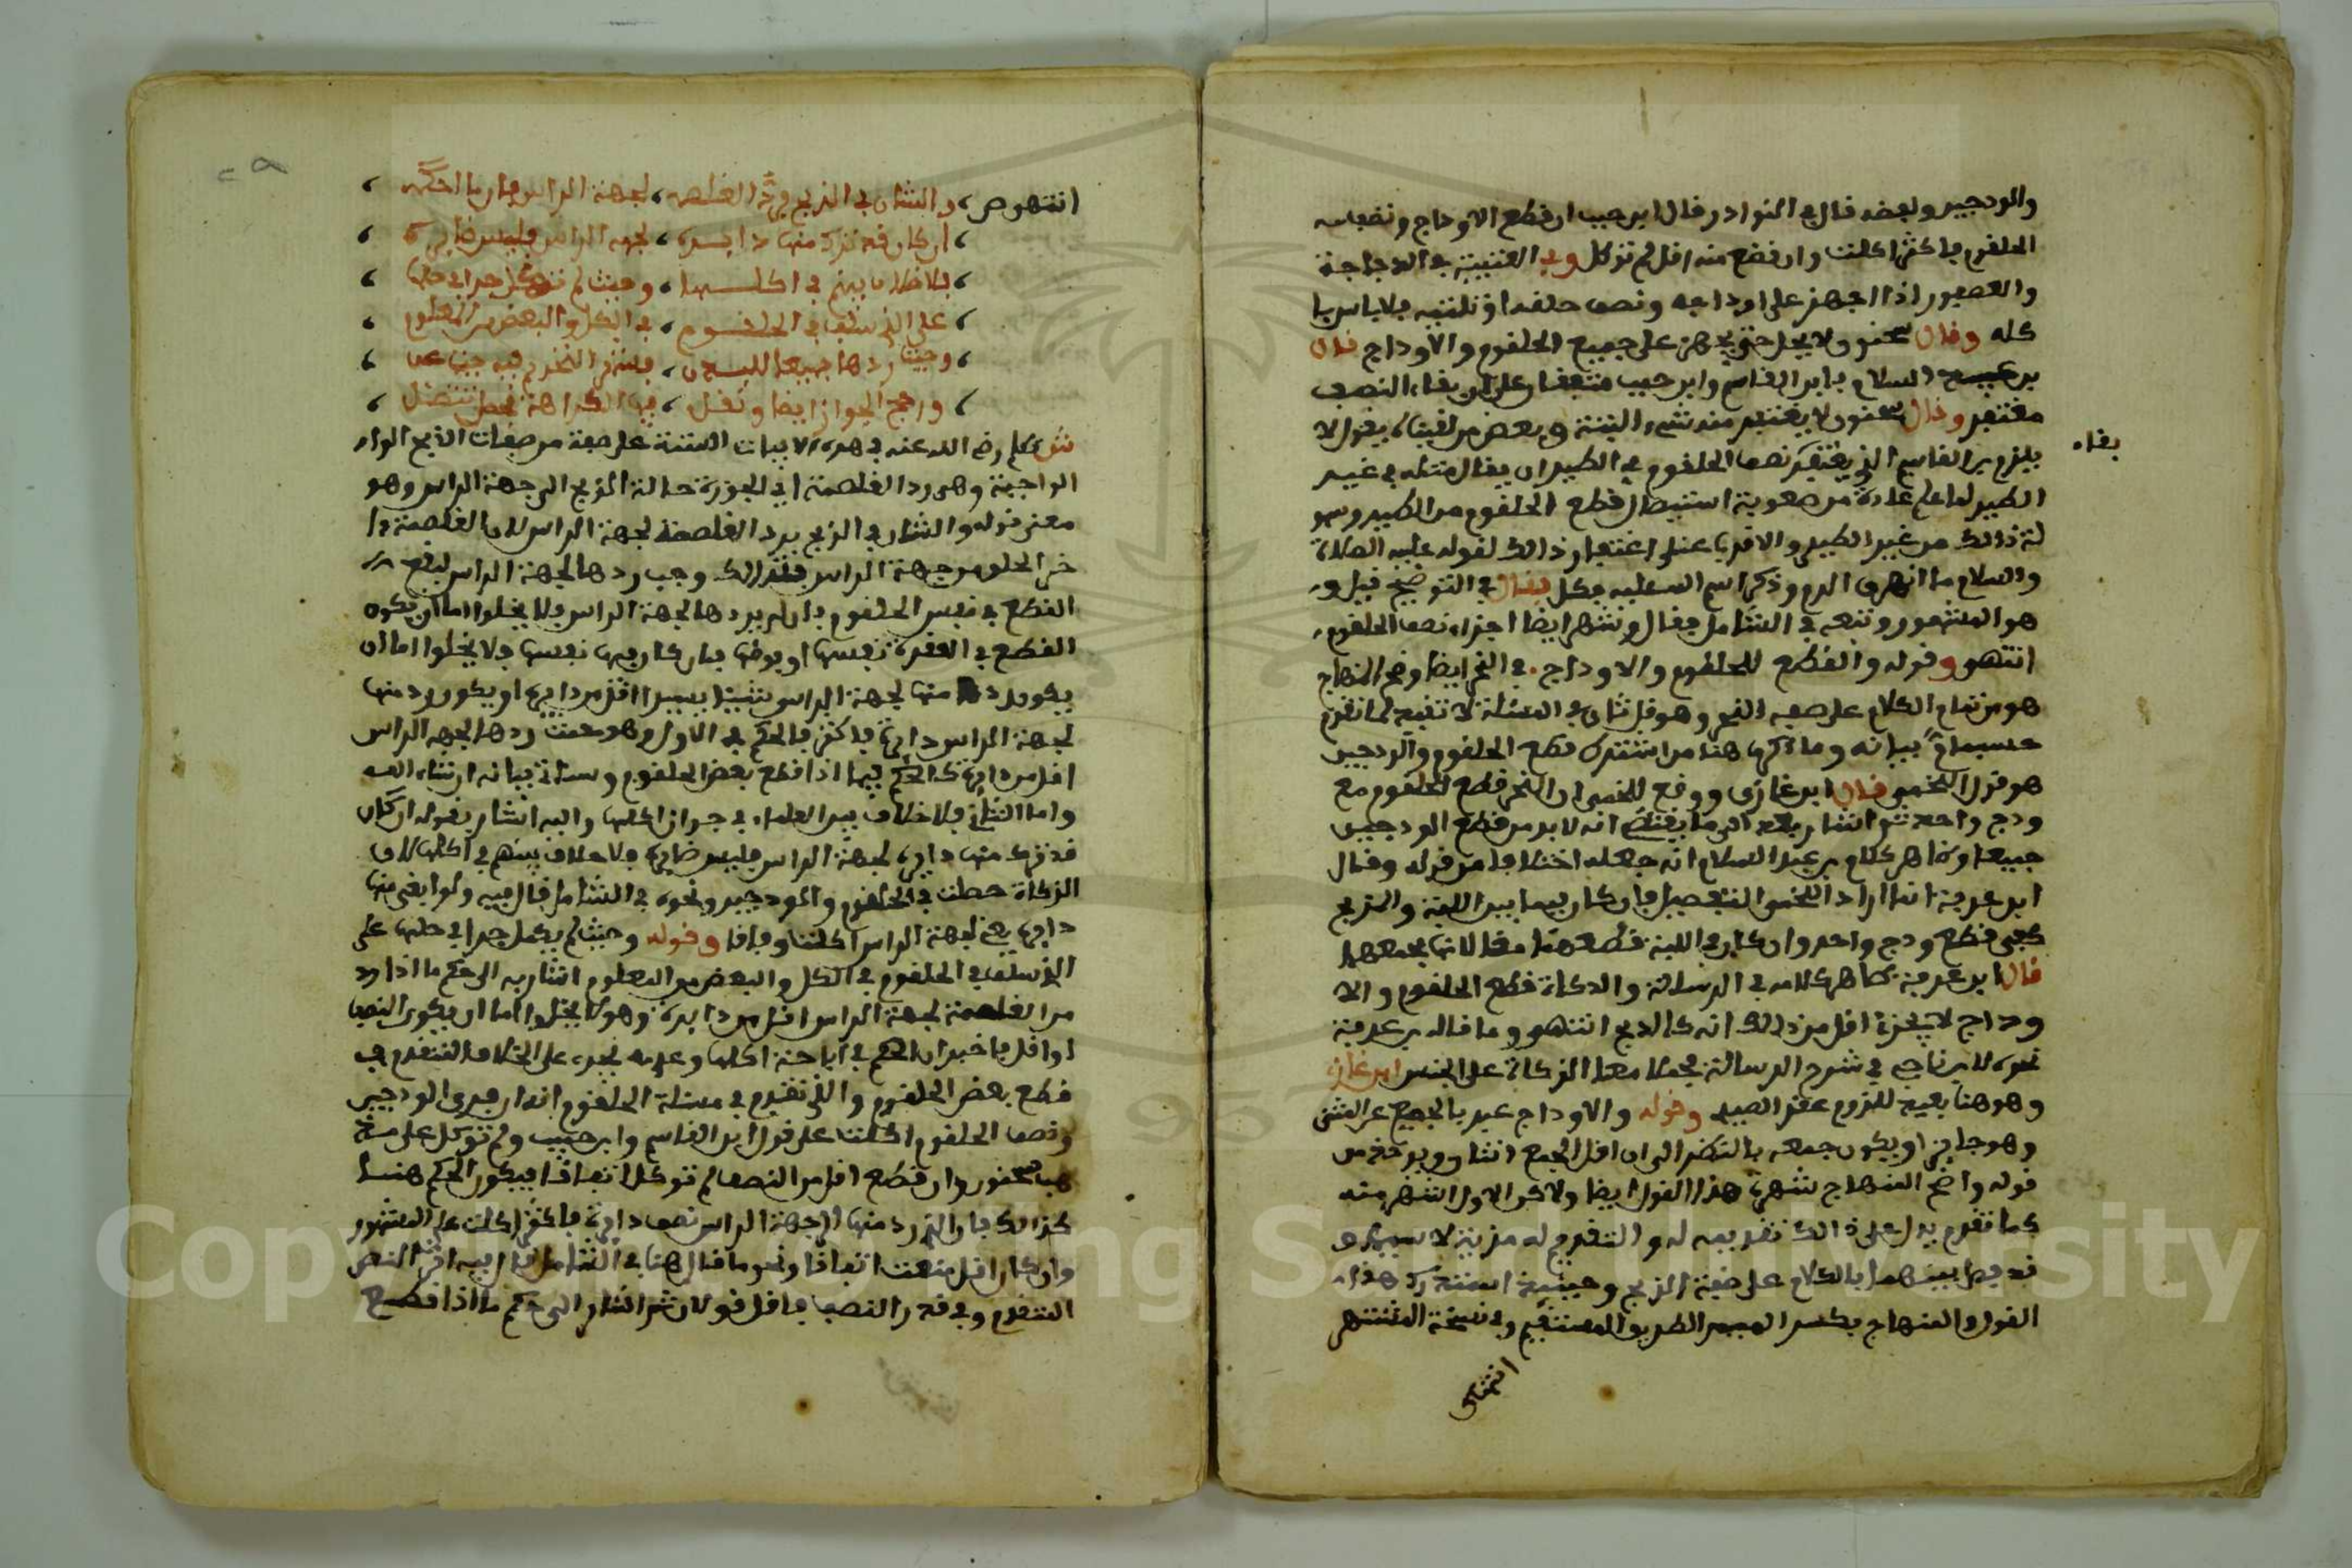 والودجين ولبعضه قال في النوادر قال ابن حبيب ان قطع الاوداج ونصف
الحلقوم فاكثر اكلت وان قطع منه اقل لم توكل وفي العتبية في الدجاجة
والعصفور اذا اجهز على اوداجه ونصف حلقه او ثلثيه فلا باس با
كله وقال سحنون لا يحل حتى يجهز على جميع الحلقوم والاوداج قال
بن عبد السلام فابن القاسم وابن حبيب متفقان على ان بقاء النصف
مغتفر وقال سحنون لا يغتفر منه شيء البتة وبعض من لقيناه يقول لا
يلزم بن القاسم الذي يغتفر نصف الحلقوم في الطير ان يقال مثله في غير
الطير لما علم عادة من صعوبة استيصال قطع الحلقوم من الطير وسهو
لة ذالك من غير الطير والاقرب عندي اغتفار ذالك لقوله عليه الصلاة
والسلام ما انهر الدم وذكر اسم الله عليه فكل فقال في التوضيح قيل و
هو المشهور وتبعه في الشامل فقال وشهر ايضا اجزاء نصف الحلقوم
انتهى وقوله والقطع للحلقوم والاوداج في النحر ايضا وضح المنهاج
هو من تمام الكلام على صفة النحر وهو قول ثان في المسئلة لا تتميم لما تقدم
حسبما بيانه وما ذكره هنا من اشتراط قطع الحلقوم والودجين
هو قول اللخمي قال ابن غازي ووقع للخمي ان النحر قطع الحلقوم مع
ودج واحد ثم اشار بعد الى ما يقتضي انه لا بد من قطع الودجين
جميعا وظاهر كلام بن عبد السلام انه جعله اختلافا من قوله وقال
ابن عرفة انما اراد اللخمي التفصيل فان كان فيما بين اللبة والمذبح
كفى قطع ودج واحد وان كان في اللبة قطعهما معا لانها مجمعهما
قال ابن عرفة ظاهر كلامه في الرسالة والذكاة قطع الحلقوم والا
وداج لا يجزئ اقل من ذالك انه كالذبح انتهى وما قاله بن عرفة
نحوه لابن ناجي في شرح الرسالة محملا معنى الذكاة على الجنس ابن غازي
وهو هنا بعيد للزوم عقر الصيد وقوله والاوداج عبر بالجمع عن المثنى
وهو جائز او يكون جمعه بالنظر الى ان اقل الجمع اثنان ويوخذ من
قوله واضح المنهاج شهرة هذا القول ايضا ولاكن الاول اشهر منه
كما تقدم يدل على ذالك تقديمه له والتقديم له مزية لا سيما و
قد فصل بينهما بالكلام على صفة الذبح وحينئذ استدرك هذا
القول والمنهاج بكسر الميم الطريق المستقيم وفي نسخة المشتهر
انتهى
بقاء
انتهى ص والشان في الذبح ورد الغلصمه لجهة الراس فبان ما احكمه
ان كان قد ترك منها دايره لجهة الراس فليس ضايره
بلا خلاف بينهم في اكلها وحيث لم تكمل جرى في حلها
على الذي سلف في الحلقوم في الكل والبعض من المعلوم
وحيث ردها جميعا للبدن
ورجح الجواز ايضا ونقل فيها الكراهة
ش تكلم رضي الله عنه في هذه الابيات الستة على صفة من صفات الذبح الوا
الواجبة وهي رد الغلصمة اي الجوزة حالة الذبح الى جهة الراس وهو
معنى قوله والشان في الذبح برد الغلصمة لجهة الراس لان الغلصمة ءا
خر الحلق من جهة الراس فلذالك وجب ردها لجهة الراس ليقع
القطع في نفس الحلقوم فان لم يردها لجهة الراس فلا يخلوا اما ان يكون
القطع في العقدة نفسها او فوقها فان كان فيها نفسها فلا يخلوا اما ان
يكون رد منها لجهة الراس شيئا يسيرا اقل من دايره او يكون رد منها
لجهة الراس دايرة فاكثر فالحكم في الاول وهو حيث ردها لجهة الراس
اقل من دايرة كالحكم فيما اذا قطع بعض الحلقوم وسياتي بيانه ان شاء الله
واما الثاني فلا خلاف بين العلماء في جواز اكلها واليه اشار بقوله ان كان
قد ترك منها دايره لجهة الراس فليس ضايره بلا خلاف بينهم في اكلها لان
الذكاة حصلت في الحلقوم والودجين ونحوه في الشامل قال فيه ولو ابقى منها
دايرة يعني لجهة الراس اكلت وفاقا وقوله وحيث لم يكمل جرى في حلها على
الذي سلف في الحلقوم في الكل والبعض من المعلوم اشار به الى حكم ما اذا رد
من الغلصمة لجهة الراس اقل من دايرة وهو لا يخلوا اما ان يكون النصف
او اقل فاخبر ان الحكم في اباحة اكلها وعدمه يجري على الخلاف المتقدم في
قطع بعض الحلقوم والذي تقدم في مسئلة الحلقوم انه ان فرى الودجين
ونصف الحلقوم اكلت على قول ابن القاسم وابن حبيب ولم توكل على مذ
هب سحنون وان قطع اقل من النصف لم توكل اتفاقا فيكون الحكم هنا
كذالك فان رد منها لجهة الراس نصف دايرة فاكثر اكلت على المشهور
وان كان اقل منعت اتفاقا ونحو ما قال هنا في الشامل قال فيه اثر النص
المتقدم وفي قدر النصف فاقل قولان ثم اشار الى حكم ما اذا قطع